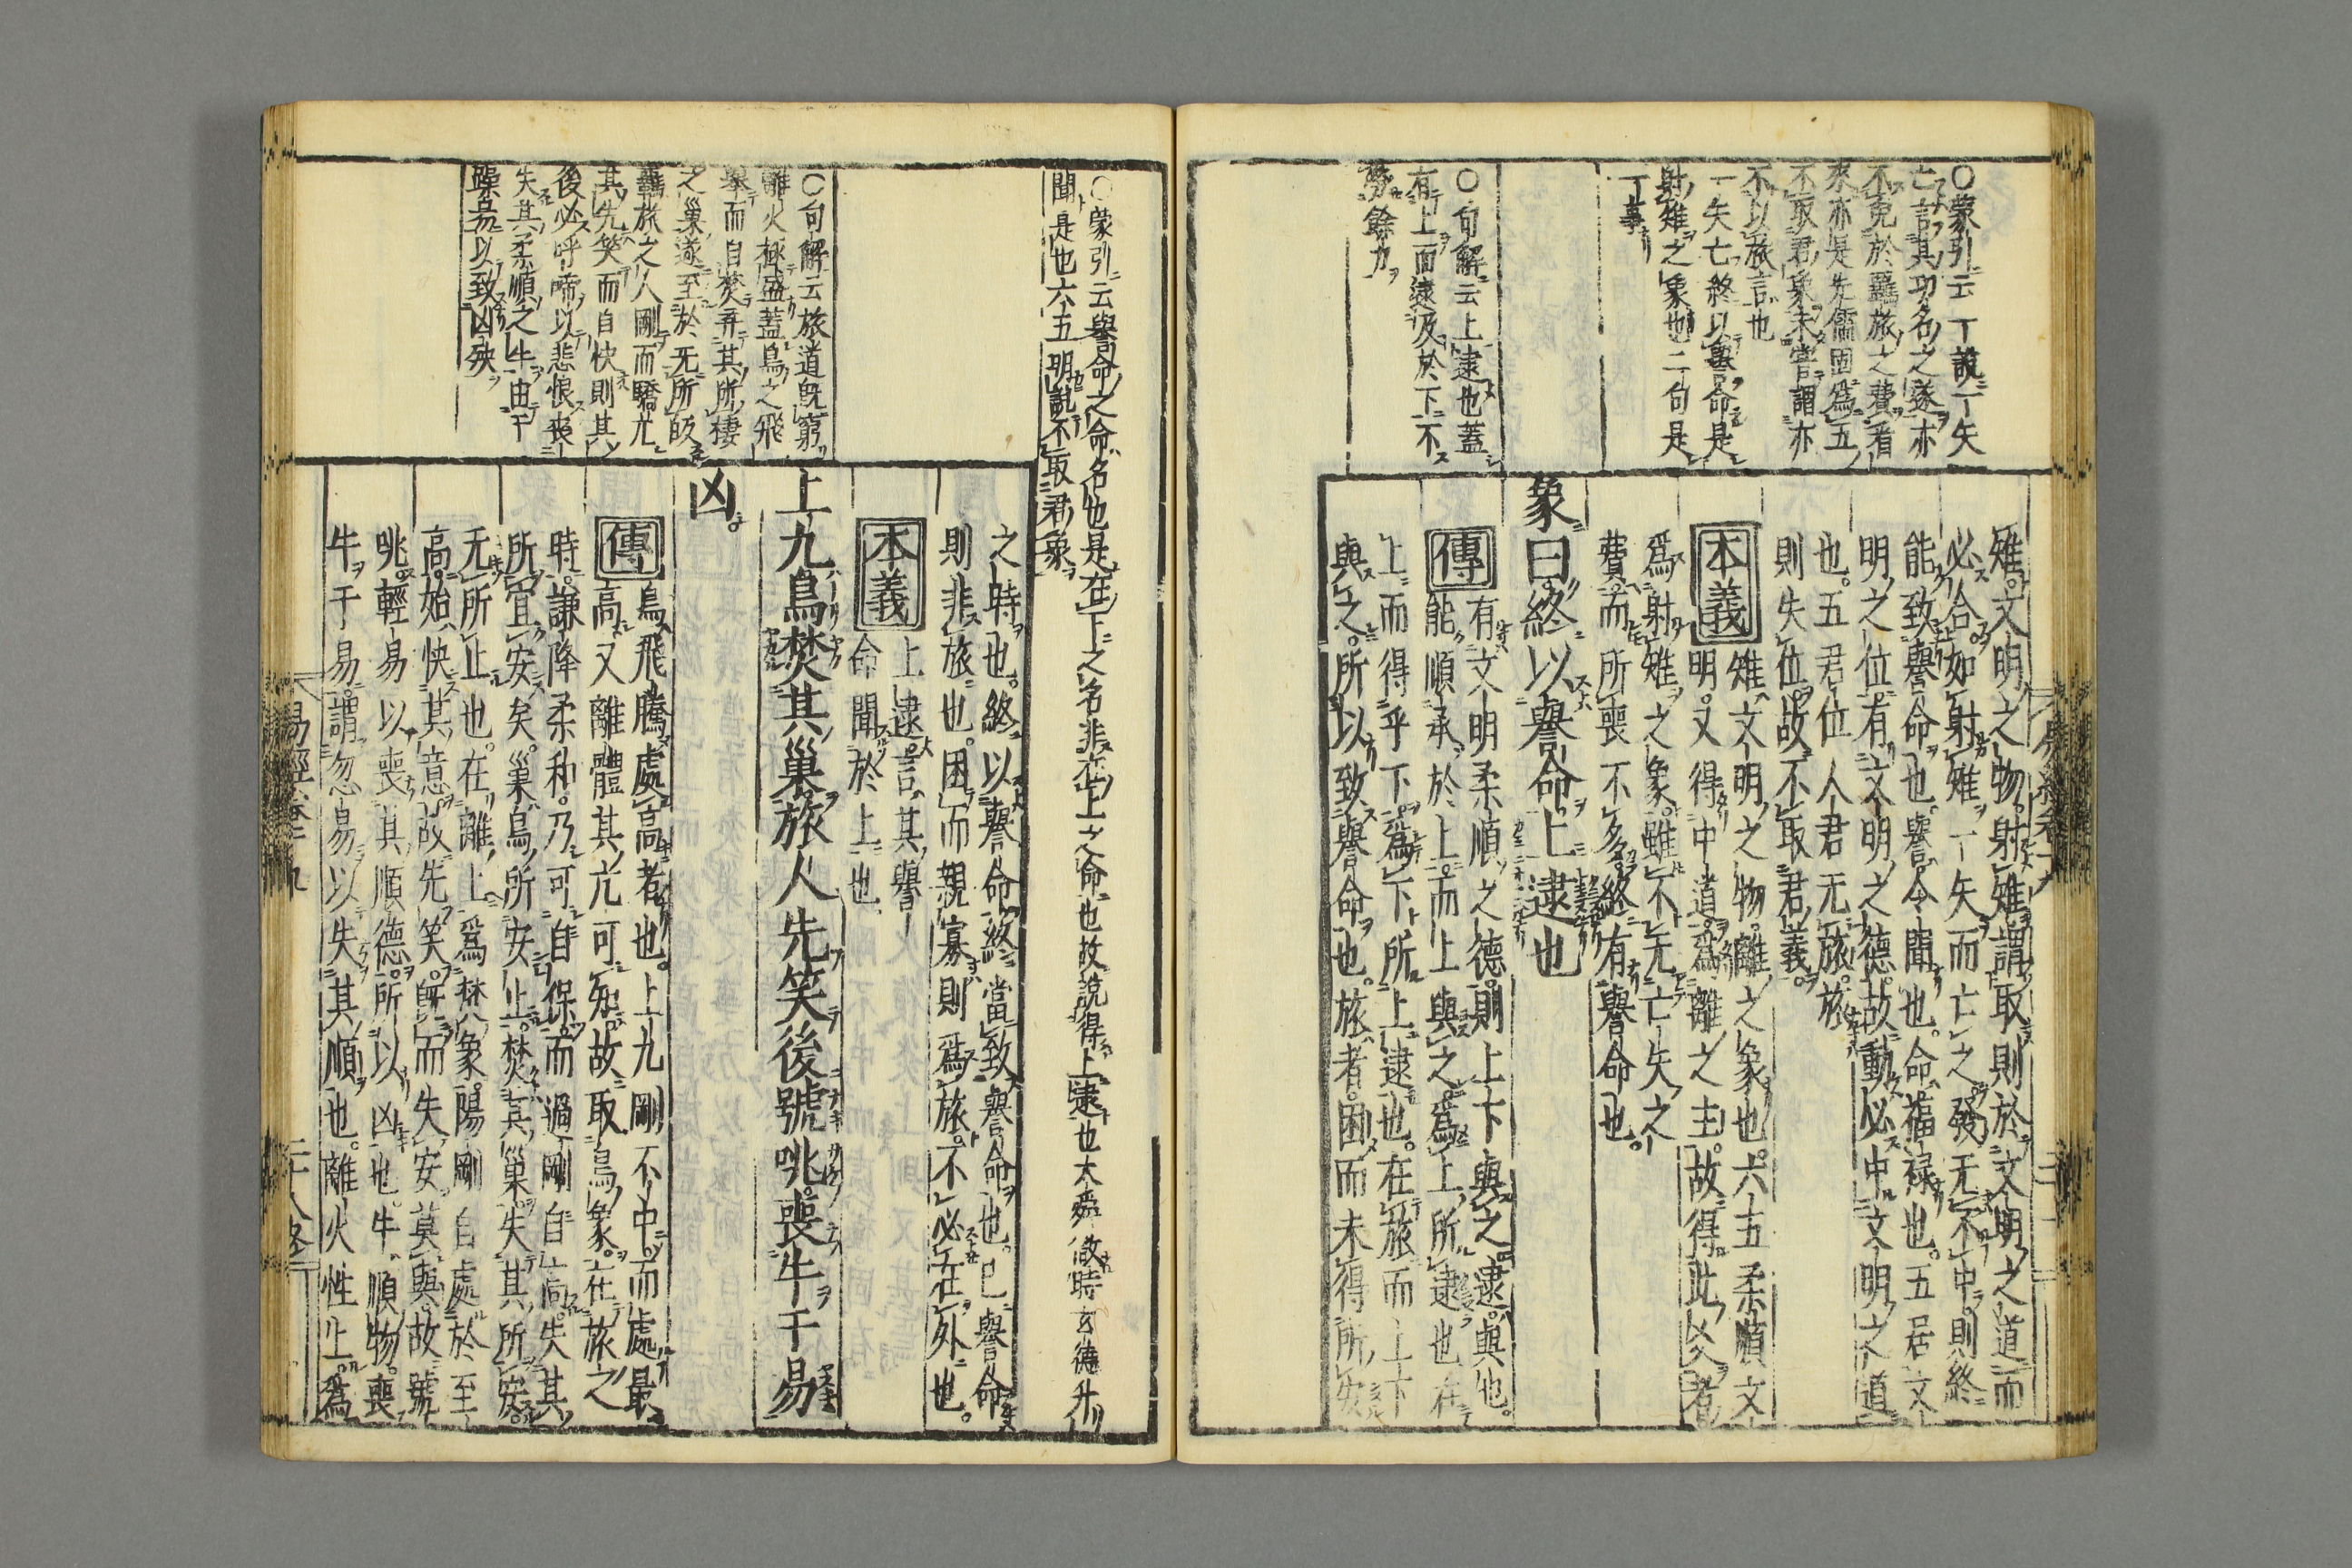 〇蒙引云一說一矢
亡言其功名之遂亦
不免於羈旅之費看
來亦是先儒固爲五
不取君象未嘗謂亦
不以旅言也
一矢亡終以譽命是
射雉之象也二句是
一事
〇句解云上逮也蓋
有上而逮及於下不
勞餘力
雉。文明之物。射雉謂取則於文明之道而
必合。如射雉一矢而亡之。發无不中。則終
能致譽命也。譽令聞也。命福祿也。五居文
明之位有文明之德。故動必中文明之道
也。五君位人君无旅。旅
則失位。故不取君義。
本義
雉文明之物。離之象也。六五柔順文
明。又得中道。爲離之主。故得此爻者
爲射雉之象。雖不无亡矢之
費。而所喪不多。終有譽命也。
象曰。終以譽命上逮也
傳
有文明柔順之德。則上下與之。逮。與也。
能順承於上。而上與之。爲上所逮也在
上而得乎下。爲下所上逮也。在旅而上下
與之。所以致譽命也。旅者。困而未得所安
〇蒙引云譽命之命名也是在下之名非在上之命也故說得上逮也大舜微時玄德升
聞是也六五明說不取君象
〇句解云旅道旣窮
離火極盛蓋鳥之飛
舉而自焚弃其所棲
之巢遂至於无所皈
羈旅之人剛而驕亢
其先笑而自快則其
後必呼啼以悲恨喪
失其柔順之牛由于
躁易以致凶殃
之時也。終以譽命終當致譽命也。已譽命
則非旅也。困而親寡則爲旅。不必在外也。
本義
上逮。言其譽
命聞於上也
上九鳥焚其巢。旅人先笑後號咷。喪牛于易
凶。
傳
鳥飛騰處高者也。上九剛不中。而處最
高。又離體其亢可知。故取鳥象。在旅之
時。謙降柔和。乃可自保。而過剛自高。失其
所宜安矣。巢鳥所安止。焚其巢。失其所安。
无所止也。在離上。爲焚象。陽剛自處於至
高。始快其意。故先笑。旣而失安莫與。故號
咷。輕易以喪其順德。所以凶也。牛。順物。喪
牛于易。謂忽易以失其順也。離火性上。爲
易經卷十九
二十八終